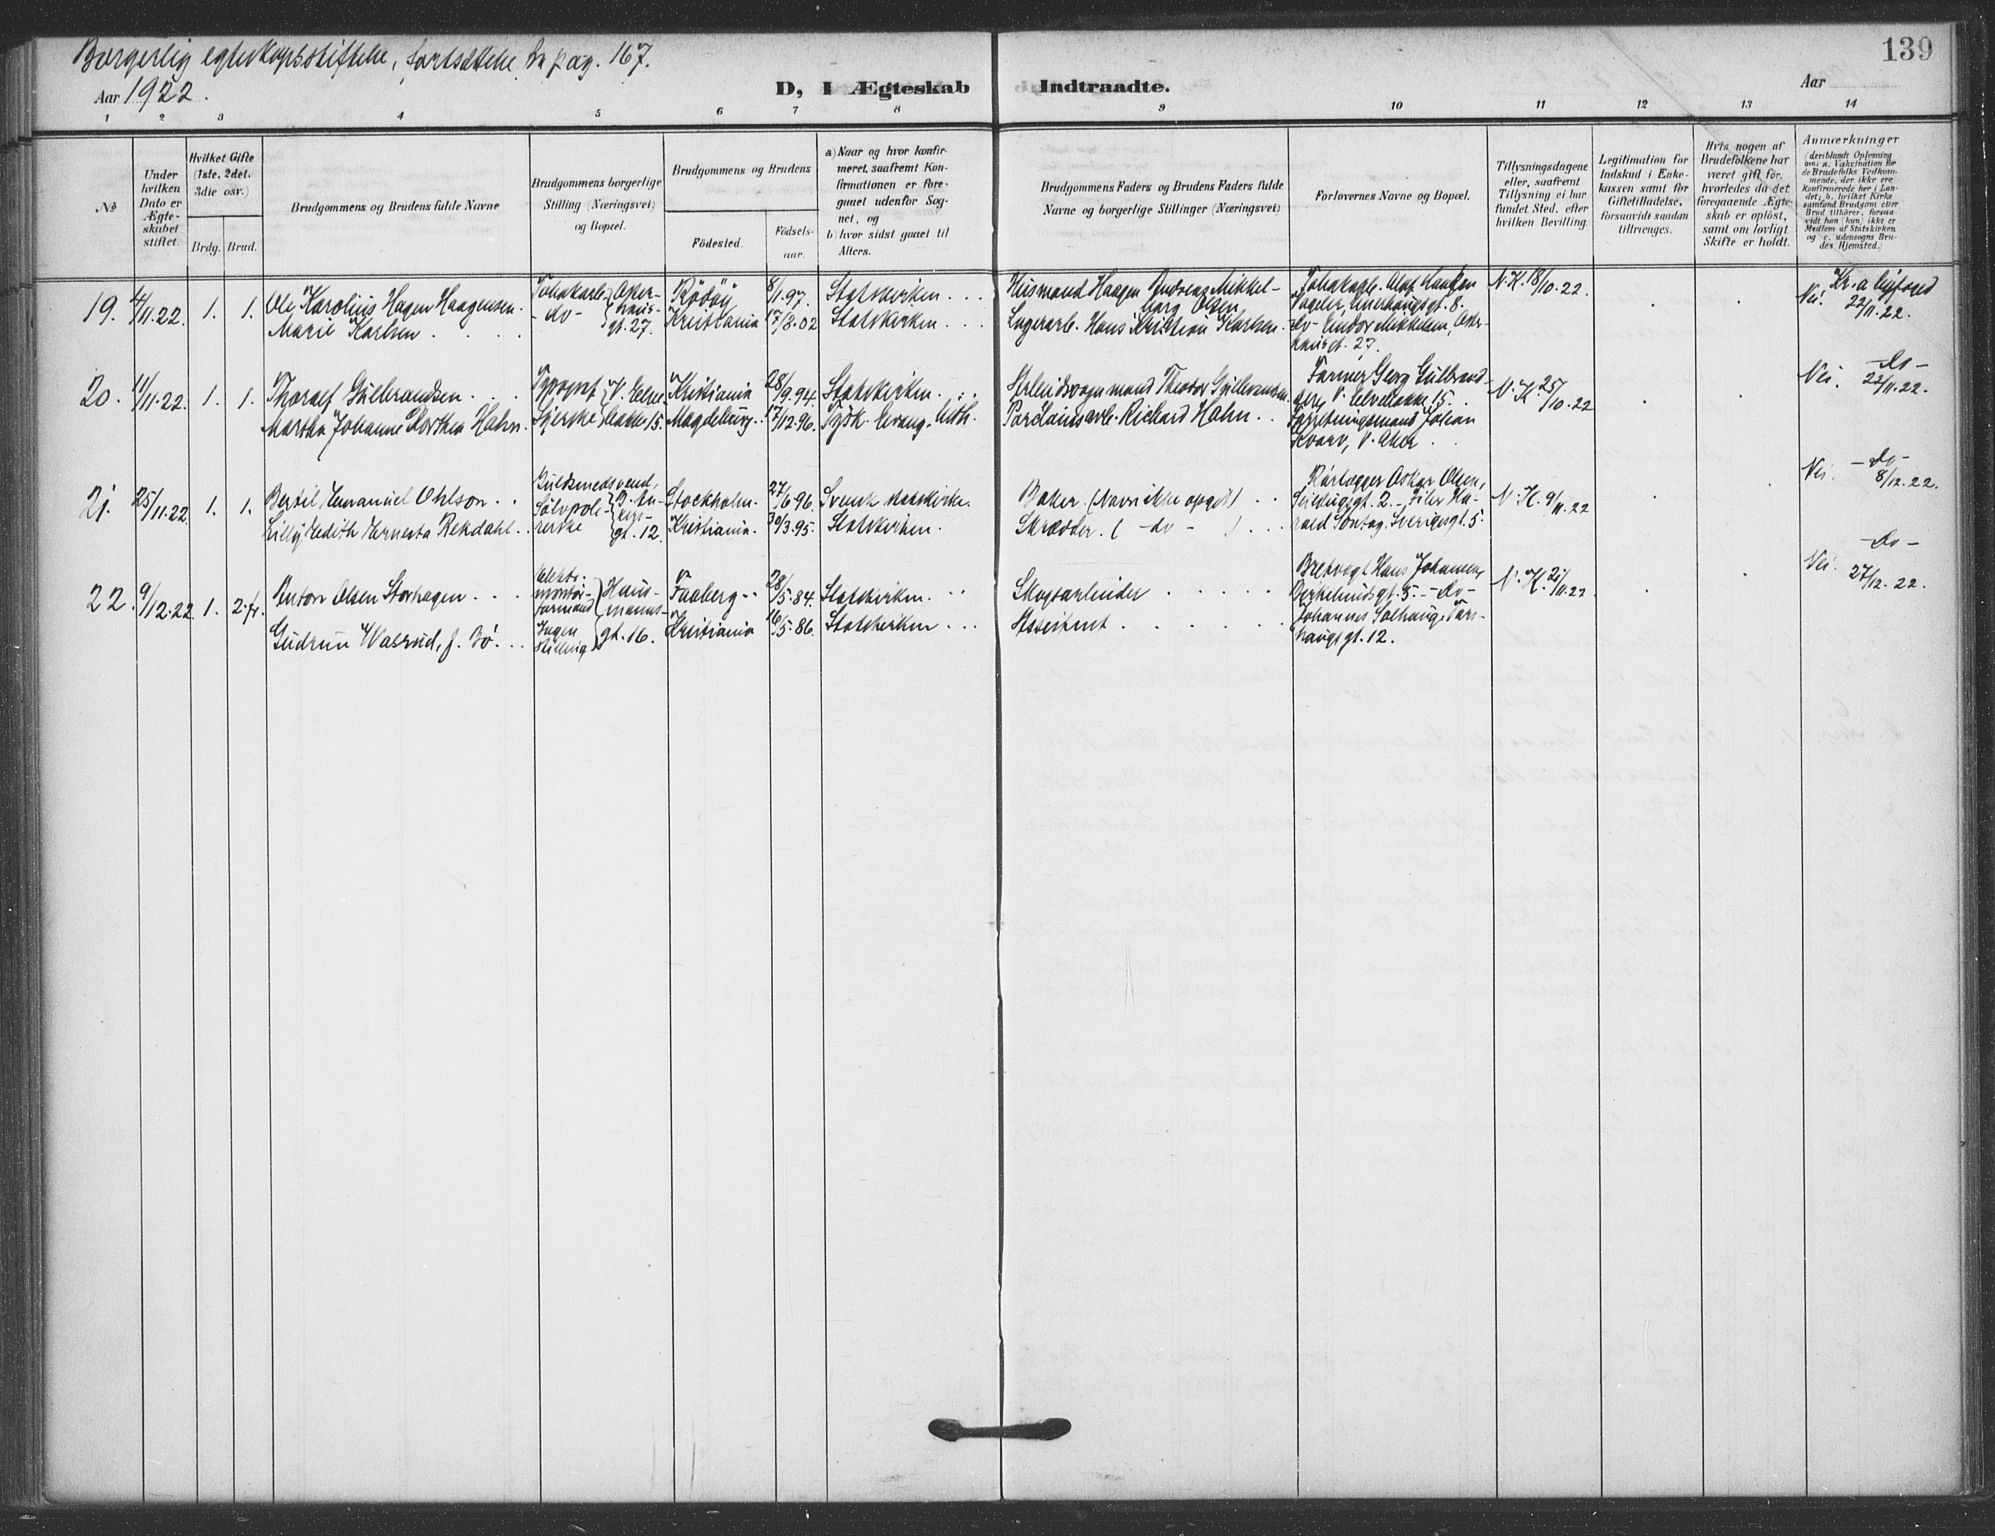 Borgerlig egteskapsstiftelse, fortsættelse fra pag. 167.
139
Aar 1922.
D, I Ægteskab Indtraadte.
Aar
1 2 3 4 5 6 7 8 9 10 11 12 13 14
No
Under hvilken Dato er Ægteskabet stiftet.
Hvilket Gifte (1ste, 2det, 3die osv.)
Brdg. Brud.
Brudgommens og Brudens fulde Navne
Brudgommens borgerlige Stilling (Næringsvei) og Bopæl.
Brudgommens og Brudens
Födested.
Födselsaar.
a) Naar og hvor konfirmeret, saafremt Konfirmationen er foregaaet udenfor Sognet, og
b) hvor sidst gaaet til Alters.
Brudgommens Faders og Brudens Faders fulde Navne og borgerlige Stillinger (Næringsvei)
Forlovernes Navne og Bopæl.
Tillysningsdagene eller, saafremt Tillysning ei har fundet Sted, efter hvilken Bevilling.
Legitimation for Indskud i Enkekassen samt for Giftetilladelse, forsaavidt saadan tiltrænges.
Hvis nogen af Brudefolkene har været gift för, hvorledes da det foregaaende Ægteskab er oplöst, samt om lovligt Skifte er holdt.
Anmærkninger
(deriblandt Oplysning om: a. Vakcination for de Brudefolks Vedkommende, der ikke ere Konfirmerede her i Landet; b. hvilket Kirkesamfund Brudgom eller Brud tilhörer, forsaavidt han (hun) ikke er Medlem af Statskirken og c. udensogns Brudes Hjemsted.)
19. 4/11.22. 1. 1. Ole Karolius Hagen Haagensen.
Marie Karlsen
Tobakarb. - do - Akershusgt. 27.
Rödöy 8/1.97. Statskirken
Kristiania 17/8.02 Statskirken
Husmand Haagen Andreas Mikkelborg Olsen
Lagerarb. Hans Kristian Karlsen
Tobakarb. Olaf Hauken
gt. 8.
do- Mikkelsen, Akershusgt. 27.
N.K. 18/10.22.
Nei. Kr.a byfoged 22/11.22.
20. 11/11.22. 1. 1. Thoralf Gulbrandsen
Martha Johanne Dorthea Hahn.
Typograf V. Elvebakke 15.
Kristiania 28/9.94. Statskirken
Magdeburg 17/12.96. Tysk Evang. luth.
Arbeidsvognmand Theodor Gulbrandsen
Porclainsarb. Richard Hahn
Former Georg Gulbrandsen V. Elvebakke 15.
Forretningsmand Johan Kvarv, V. Aker
N.K. 25/10.22
Nei. - do - 22/11.22.
21. 25/11.22 1. 1. Bertil Emanuel Ohlson
Lilly Edith Ernesta Rekdahl
Guldsmedsvend, Sölvpolererske gt. 12.
Stockholm. 27/6.96. Svensk statskirke.
Kristiania. 30/3.95. Statskirken.
Baker (Navn ikke opgit)
Skrædder. ( - do - )
Rörlægger Oskar Olsen, gt. 2.
Harald Sontag, Sverigesgt. 5.
N.K. 9/11.22
Nei. - do - 8/12.22.
22. 9/12.22 1. 2. fr. Anton Olsen Storhagen
Gudrun Wasrud, f. Bö.
Elektr. montörformand Ingen stilling Hausmannsgt. 16.
Faaberg 28/5.84. Statskirken
Kristiania 16/5.86. Statskirken
Skogsarbeider
Assistent
Brevvegt Hans Johansen, Birkelundsgt. 5. - do -
Johannes Solhaug, Torshaugsgt. 12.
N.K. 21/11.22
Nei. - do - 27/12.22.